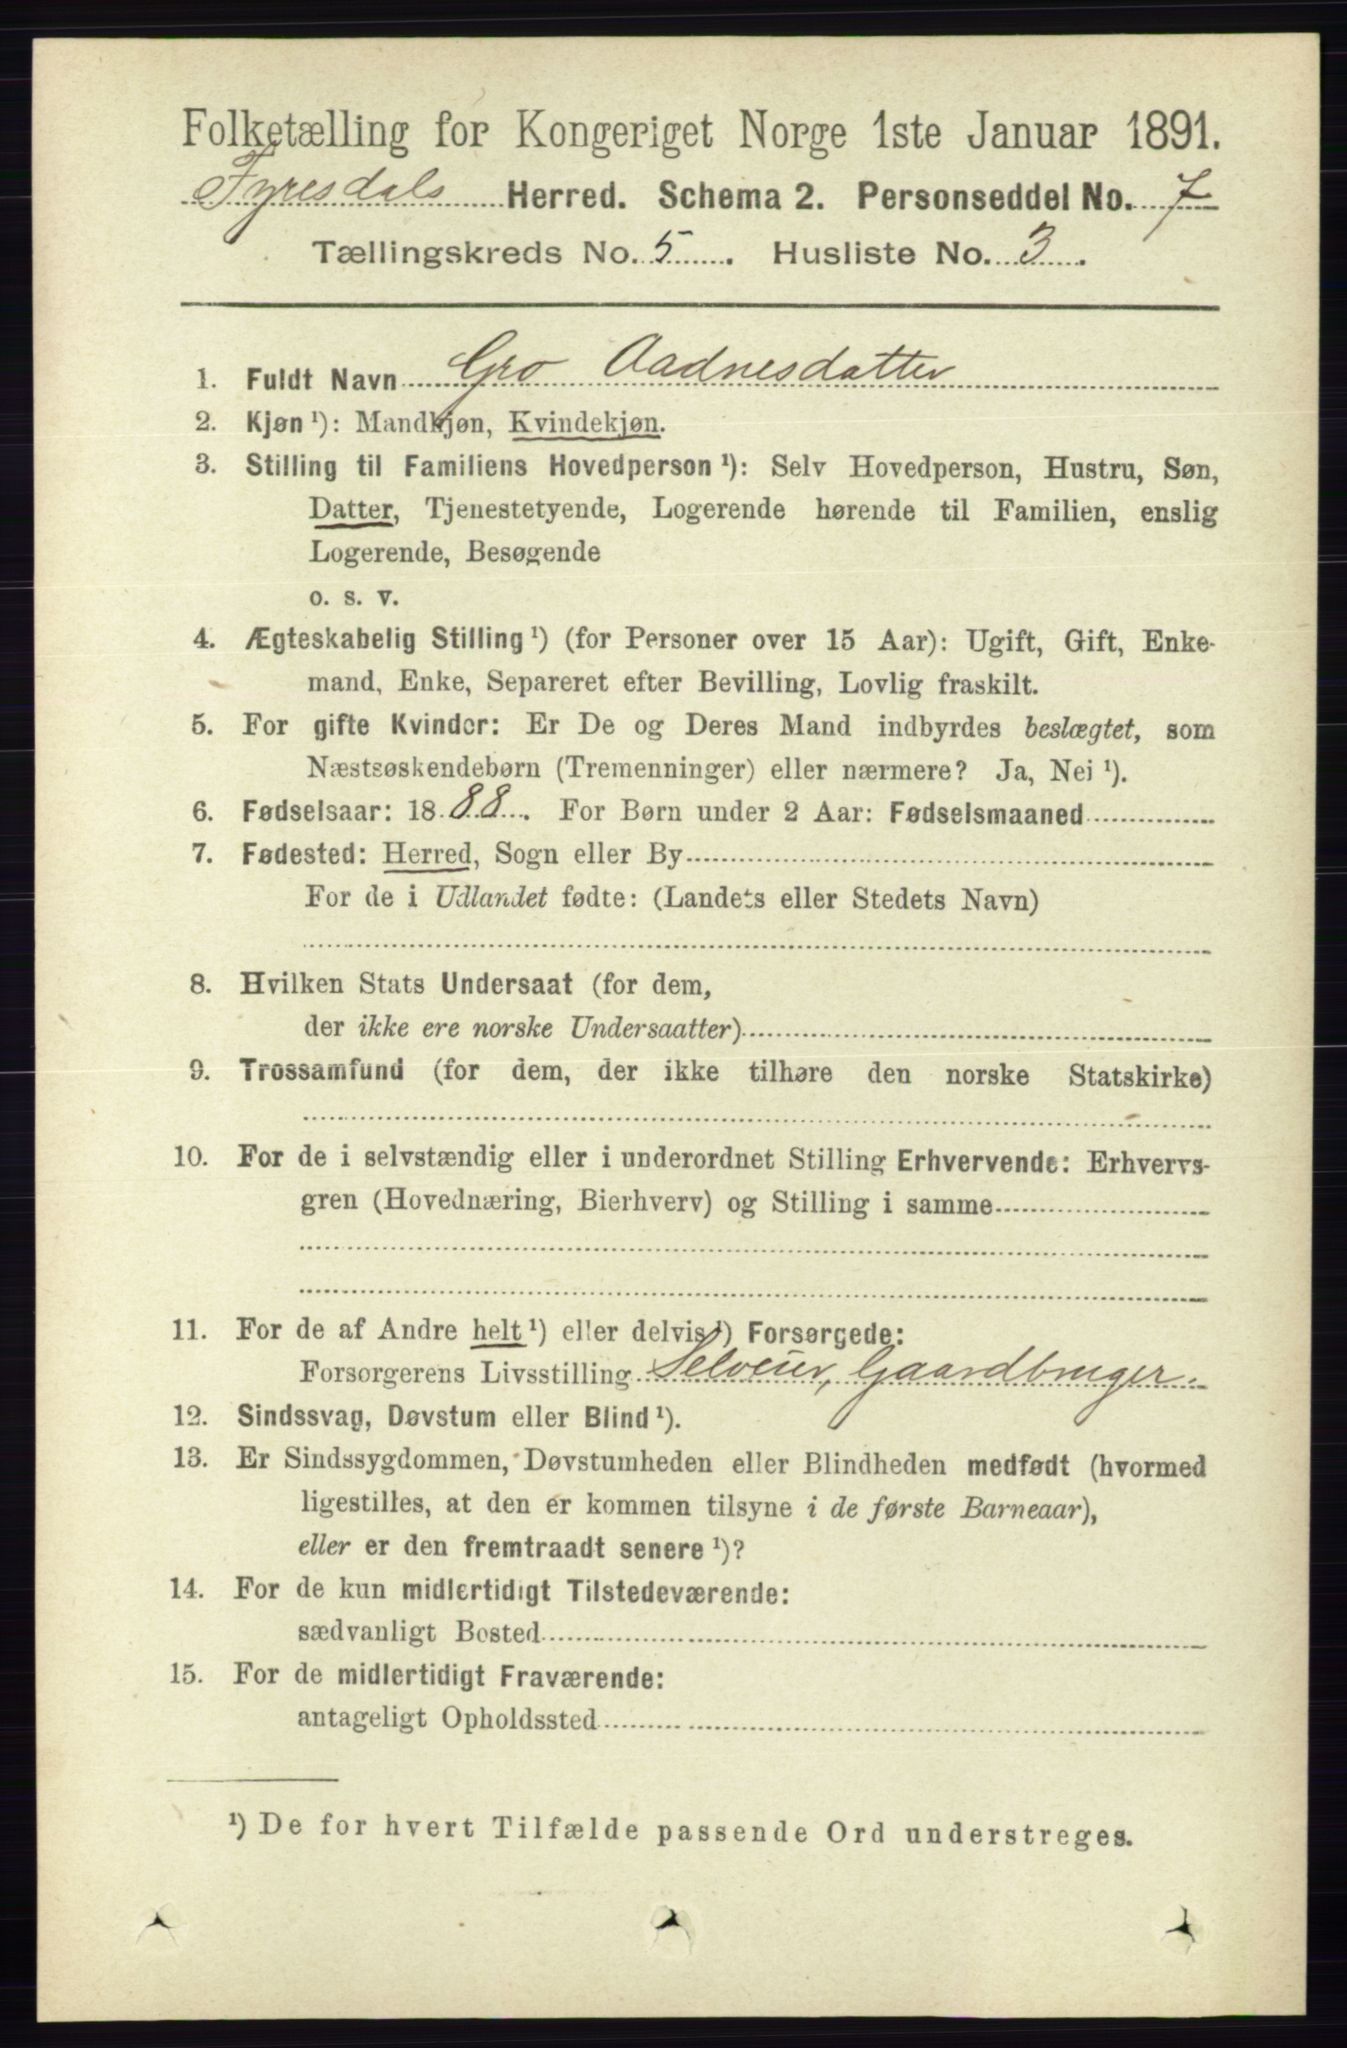 Folketælling for Kongeriget Norge 1ste Januar 1891.
Fyresdals Herred. Schema 2. Personseddel No. 7
Tællingskreds No. 5. Husliste No. 3.
1. Fuldt Navn Gro Aadnesdatter
2. Kjøn ¹): Mandkjøn, Kvindekjøn.
3. Stilling til Familiens Hovedperson ¹): Selv Hovedperson, Hustru, Søn,
Datter, Tjenestetyende, Logerende hørende til Familien, enslig
Logerende, Besøgende
o. s. v.
4. Ægteskabelig Stilling ¹) (for Personer over 15 Aar): Ugift, Gift, Enke-
mand, Enke, Separeret efter Bevilling, Lovlig fraskilt.
5. For gifte Kvinder: Er De og Deres Mand indbyrdes beslægtet, som
Næstsøskendebørn (Tremenninger) eller nærmere? Ja, Nei ¹).
6. Fødselsaar: 1888. For Børn under 2 Aar: Fødselsmaaned
7. Fødested: Herred, Sogn eller By
For de i Udlandet fødte: (Landets eller Stedets Navn)
8. Hvilken Stats Undersaat (for dem,
der ikke ere norske Undersaatter)
9. Trossamfund (for dem, der ikke tilhøre den norske Statskirke)
10. For de i selvstændig eller i underordnet Stilling Erhvervende: Erhvervs-
gren (Hovednæring, Bierhverv) og Stilling i samme
11. For de af Andre helt ¹) eller delvis ¹) Forsørgede:
Forsørgerens Livsstilling Selveier, Gaardbruger.
12. Sindssvag, Døvstum eller Blind ¹).
13. Er Sindssygdommen, Døvstumheden eller Blindheden medfødt (hvormed
ligestilles, at den er kommen tilsyne i de første Barneaar),
eller er den fremtraadt senere ¹)?
14. For de kun midlertidigt Tilstedeværende:
sædvanligt Bosted
15. For de midlertidigt Fraværende:
antageligt Opholdssted
¹) De for hvert Tilfælde passende Ord understreges.